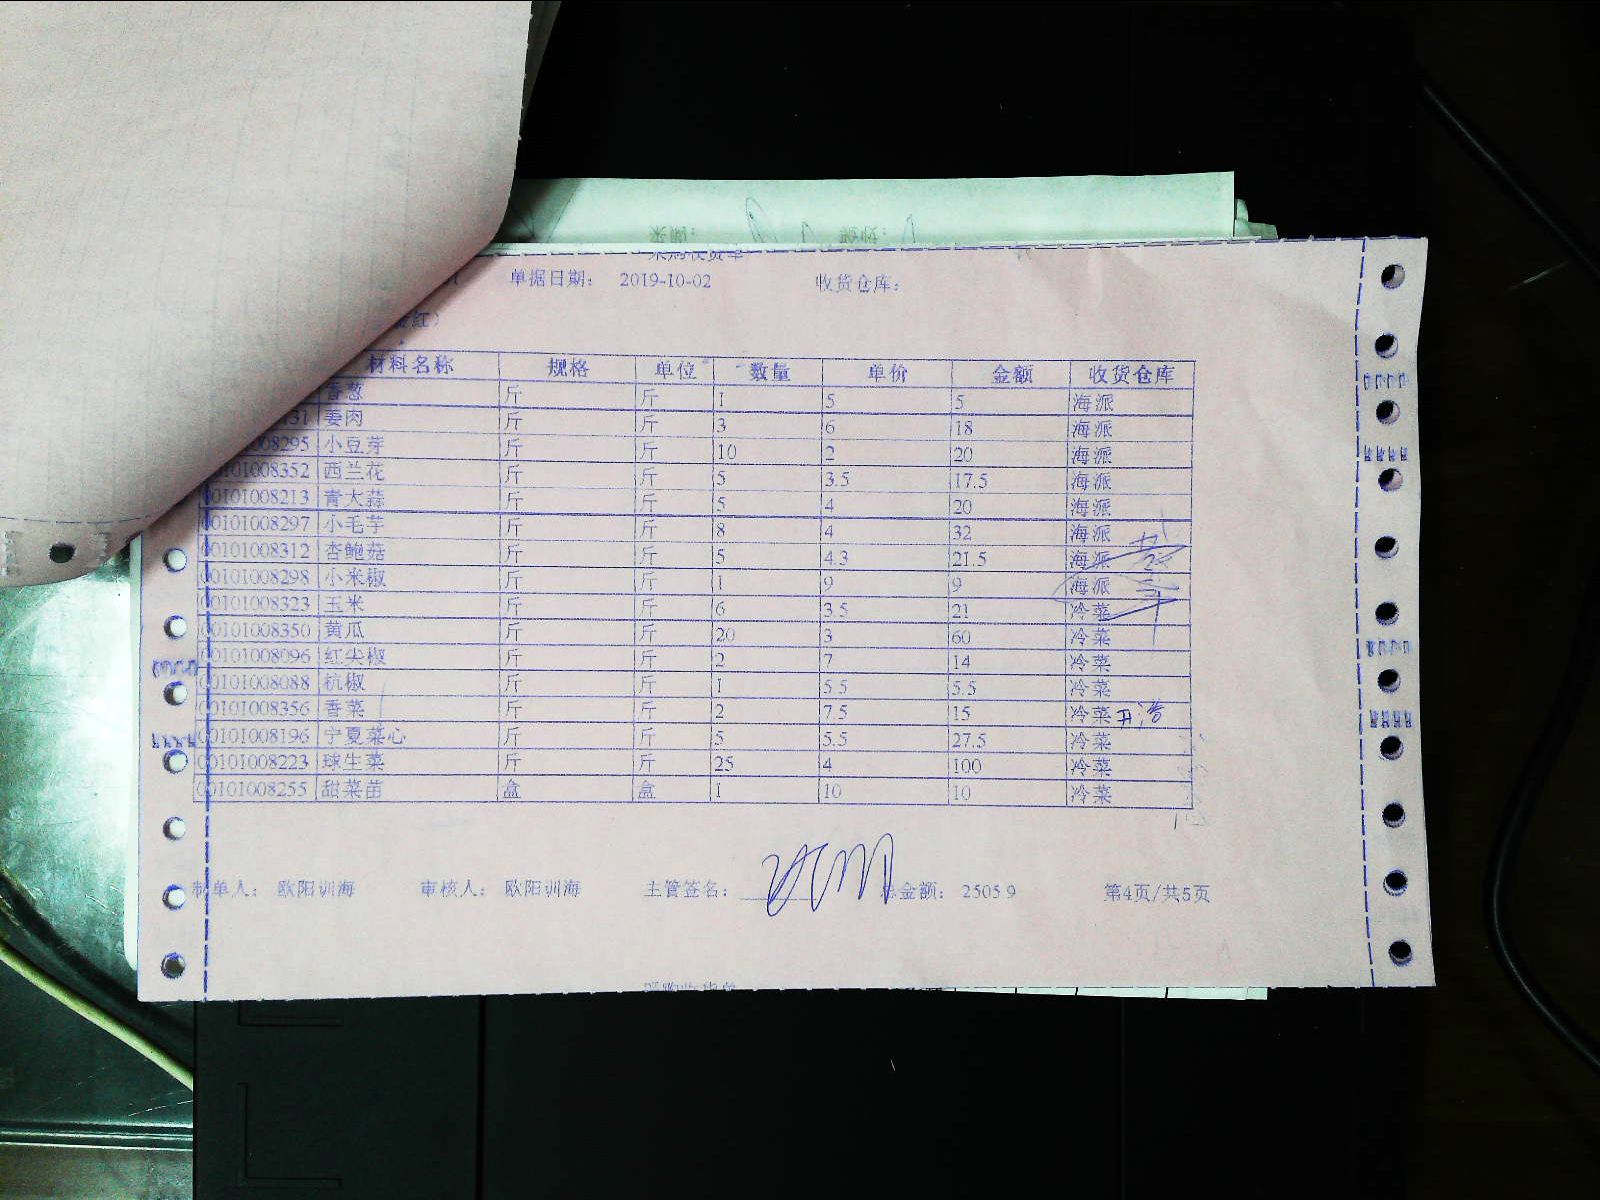 单据日期： 2019-10-02 收货仓库：
红）
材料名称 规格 单位 数量 单价 金额 收货仓库
香葱 斤 斤 1 5 5 海派
31 姜肉 斤 斤 3 6 18 海派
008295 小豆芽 斤 斤 10 2 20 海派
0101008352 西兰花 斤 斤 5 3.5 17.5 海派
00101008213 青大蒜 斤 斤 5 4 20 海派
00101008297 小毛芋 斤 斤 8 4 32 海派
00101008312 杏鲍菇 斤 斤 5 4.3 21.5 海派
00101008298 小米椒 斤 斤 1 9 9 海派
00101008323 玉米 斤 斤 6 3.5 21 冷菜
00101008350 黄瓜 斤 斤 20 3 60 冷菜
00101008096 红尖椒 斤 斤 2 7 14 冷菜
00101008088 杭椒 斤 斤 1 5.5 5.5 冷菜
00101008356 香菜 斤 斤 2 7.5 15 冷菜
00101008196 宁夏菜心 斤 斤 5 5.5 27.5 冷菜
00101008223 球生菜 斤 斤 25 4 100 冷菜
00101008255 甜菜苗 盒 盒 1 10 10 冷菜
制单人： 欧阳训海 审核人： 欧阳训海 主管签名： 总金额： 2505.9 第4页/共5页